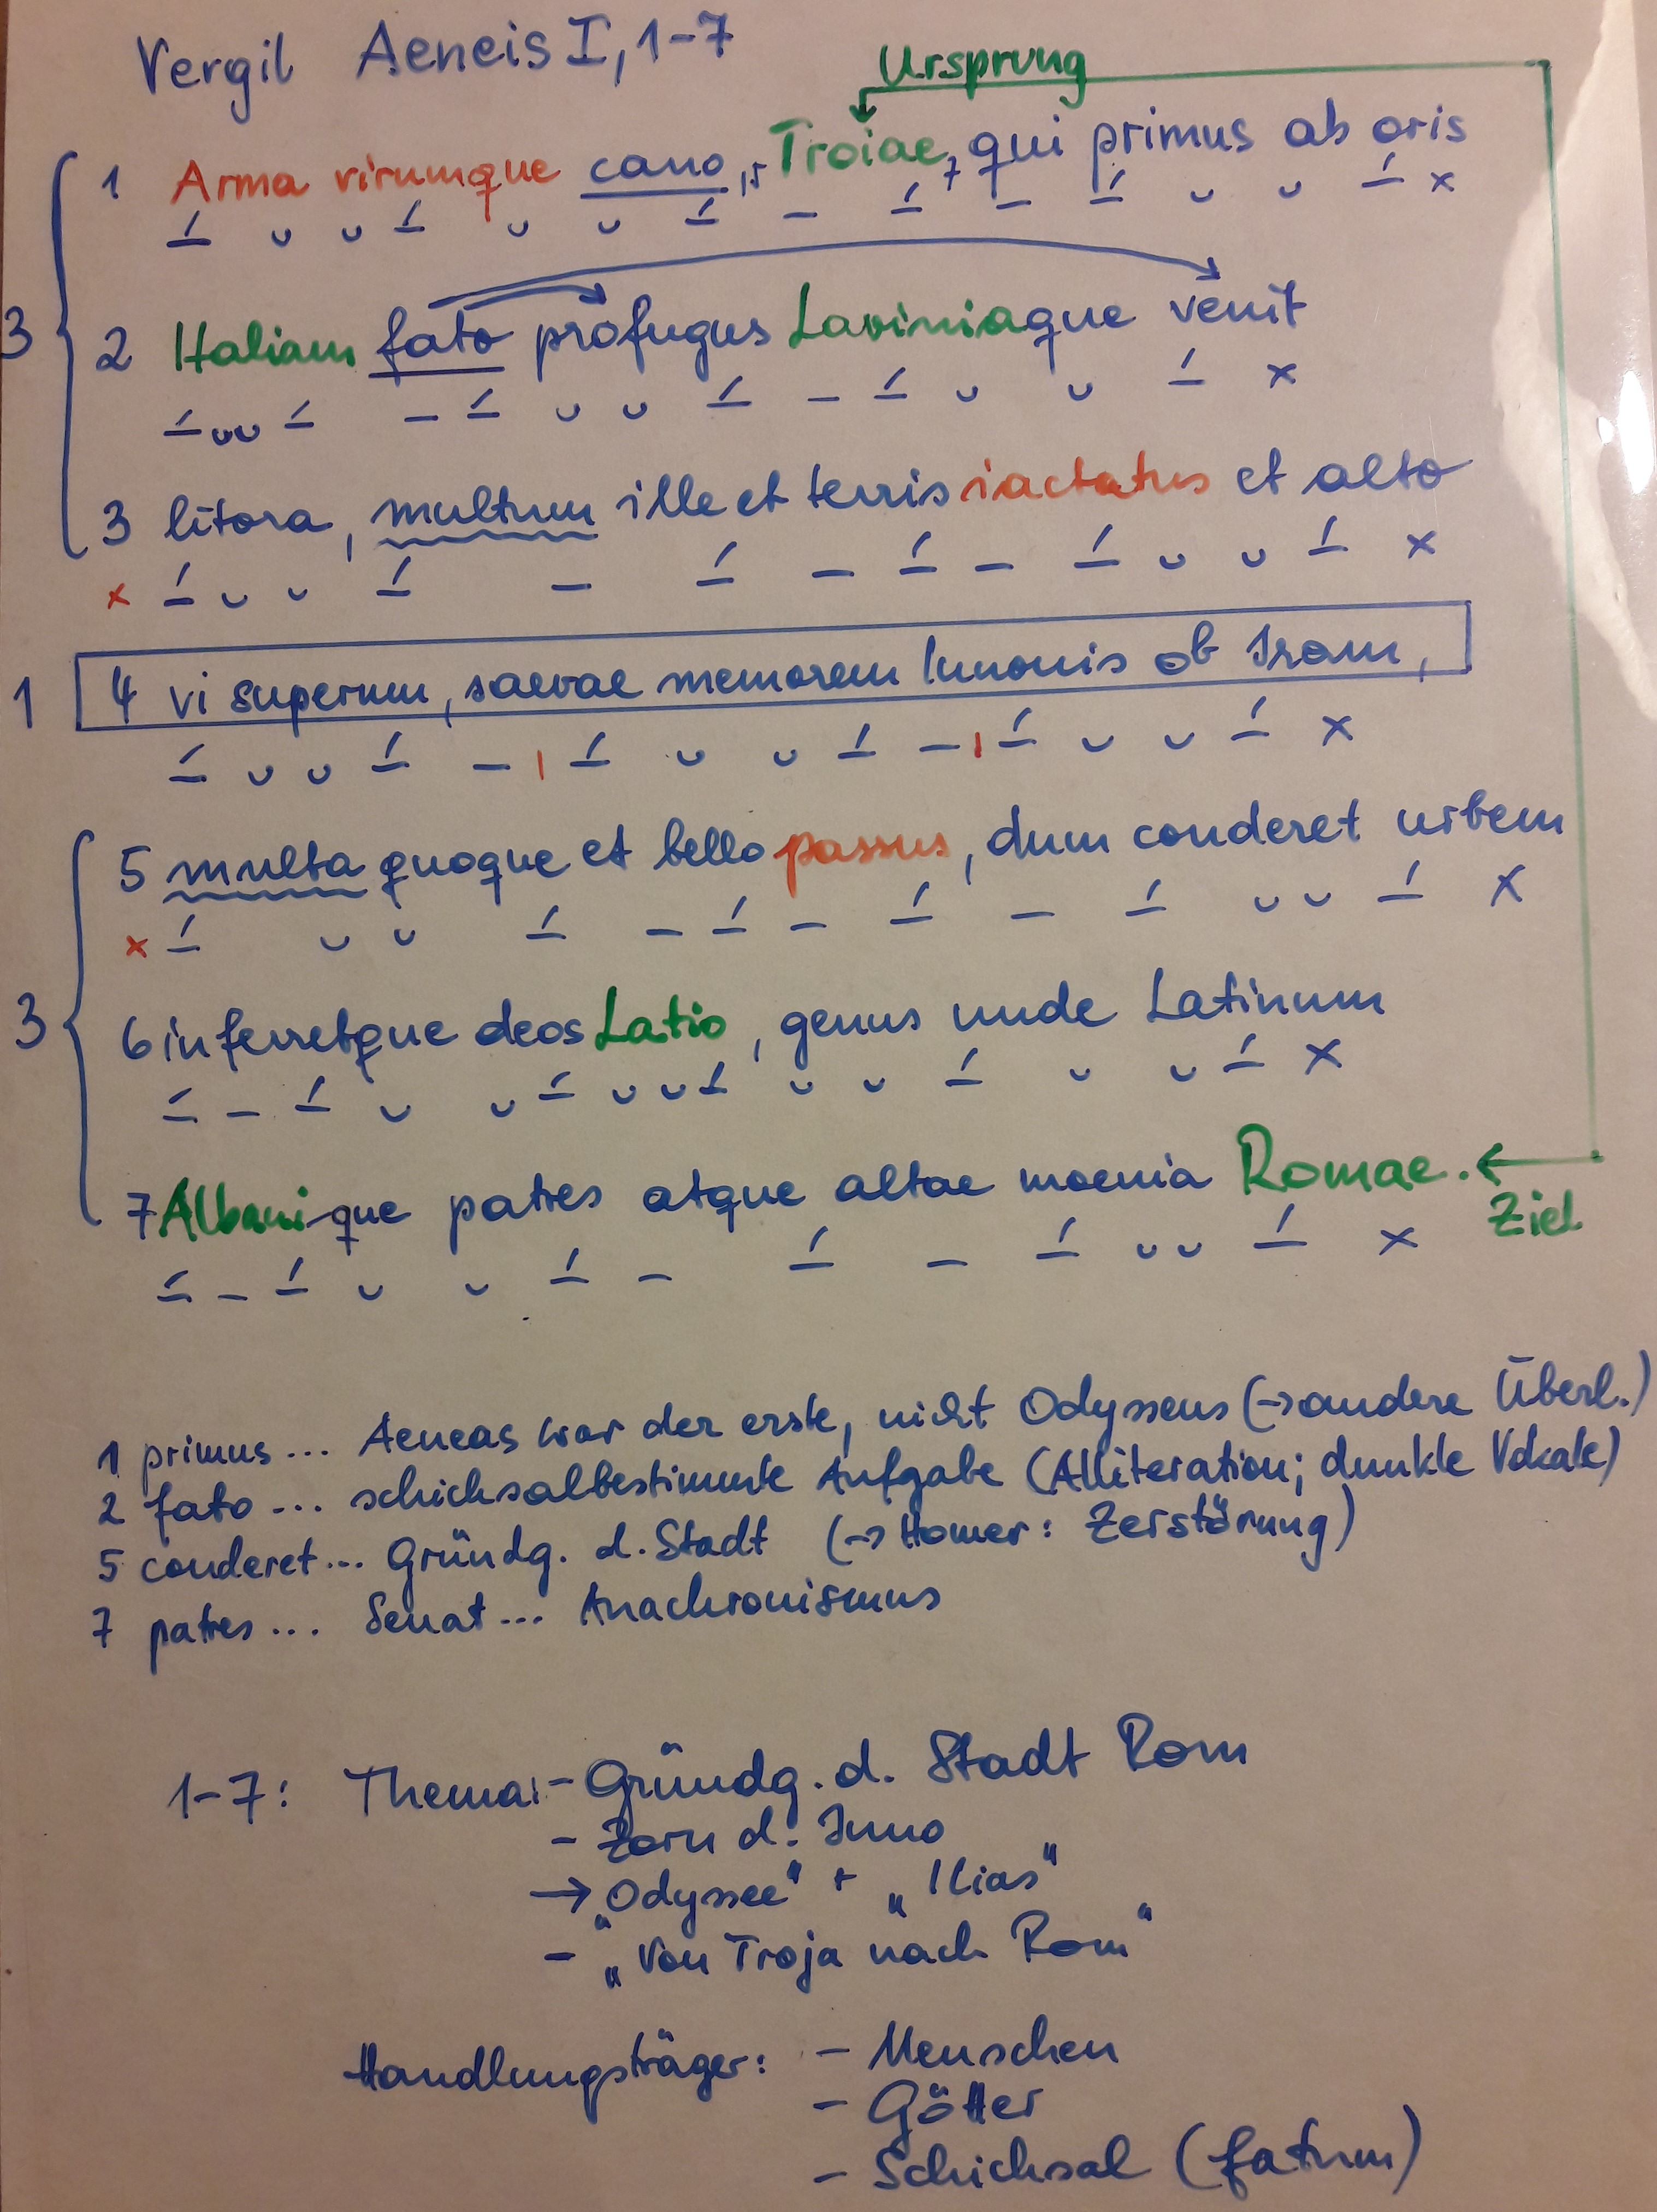 Vergil Aeneis I, 1-7
Ursprung
1 Arma virumque cano, Troiae, qui primus ab oris
– ∪ ∪ – ∪ ∪ – – – – – ∪ ∪ – x
3
2 Italiam fato profugus Laviniaque venit
– ∪ ∪ – – – ∪ ∪ – – – ∪ ∪ – x
3 litora, multum ille et terris iactatus et alto
x – ∪ ∪ – – – – – – – ∪ ∪ – x
1
4 vi superum, saevae memorem Iunonis ob Iram,
– ∪ ∪ – – | – ∪ ∪ – – | – ∪ ∪ – x
5 multa quoque et bello passus, dum conderet urbem
x – ∪ ∪ – – – – – – – ∪ ∪ – x
3
6 inferretque deos Latio, genus unde Latinum
– – – ∪ ∪ – ∪ ∪ – ∪ ∪ – ∪ ∪ – x
7 Albani-que patres atque altae moenia Romae.
Ziel
– – – ∪ ∪ – – – – – ∪ ∪ – x
1 primus... Aeneas war der erste, nicht Odysseus (→ andere Überl.)
2 fato... schicksalbestimmte Aufgabe (Alliteration; dunkle Vokale)
5 conderet... Gründg. d. Stadt (→ Homer: Zerstörung)
7 patres... Senat... Anachronismus
1-7: Thema: - Gründg. d. Stadt Rom
- Zorn d. Juno
→ „Odyssee" + „Ilias"
- „Von Troja nach Rom"
Handlungsträger: - Menschen
- Götter
- Schicksal (fatum)